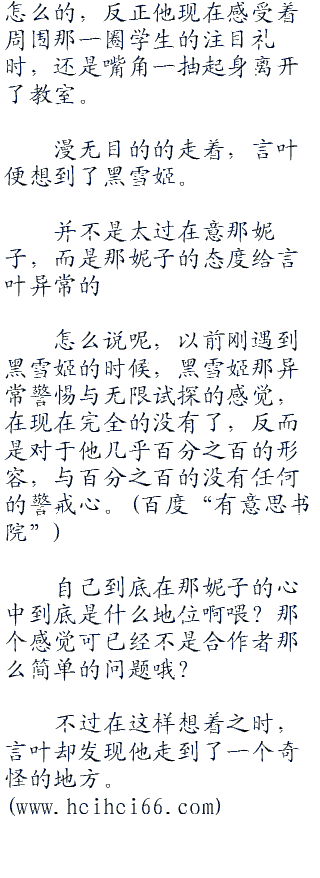 怎么的，反正他现在感受着
周围那一圈学生的注目礼
时，还是嘴角一抽起身离开
了教室。
漫无目的的走着，言叶
便想到了黑雪姬。
并不是太过在意那妮
子，而是那妮子的态度给言
叶异常的
怎么说呢，以前刚遇到
黑雪姬的时候，黑雪姬那异
常警惕与无限试探的感觉，
在现在完全的没有了，反而
是对于他几乎百分之百的形
容，与百分之百的没有任何
的警戒心。(百度“有意思书
院”)
自己到底在那妮子的心
中到底是什么地位啊喂？那
个感觉可已经不是合作者那
么简单的问题哦？
不过在这样想着之时，
言叶却发现他走到了一个奇
怪的地方。
(www.hcihci66.com)